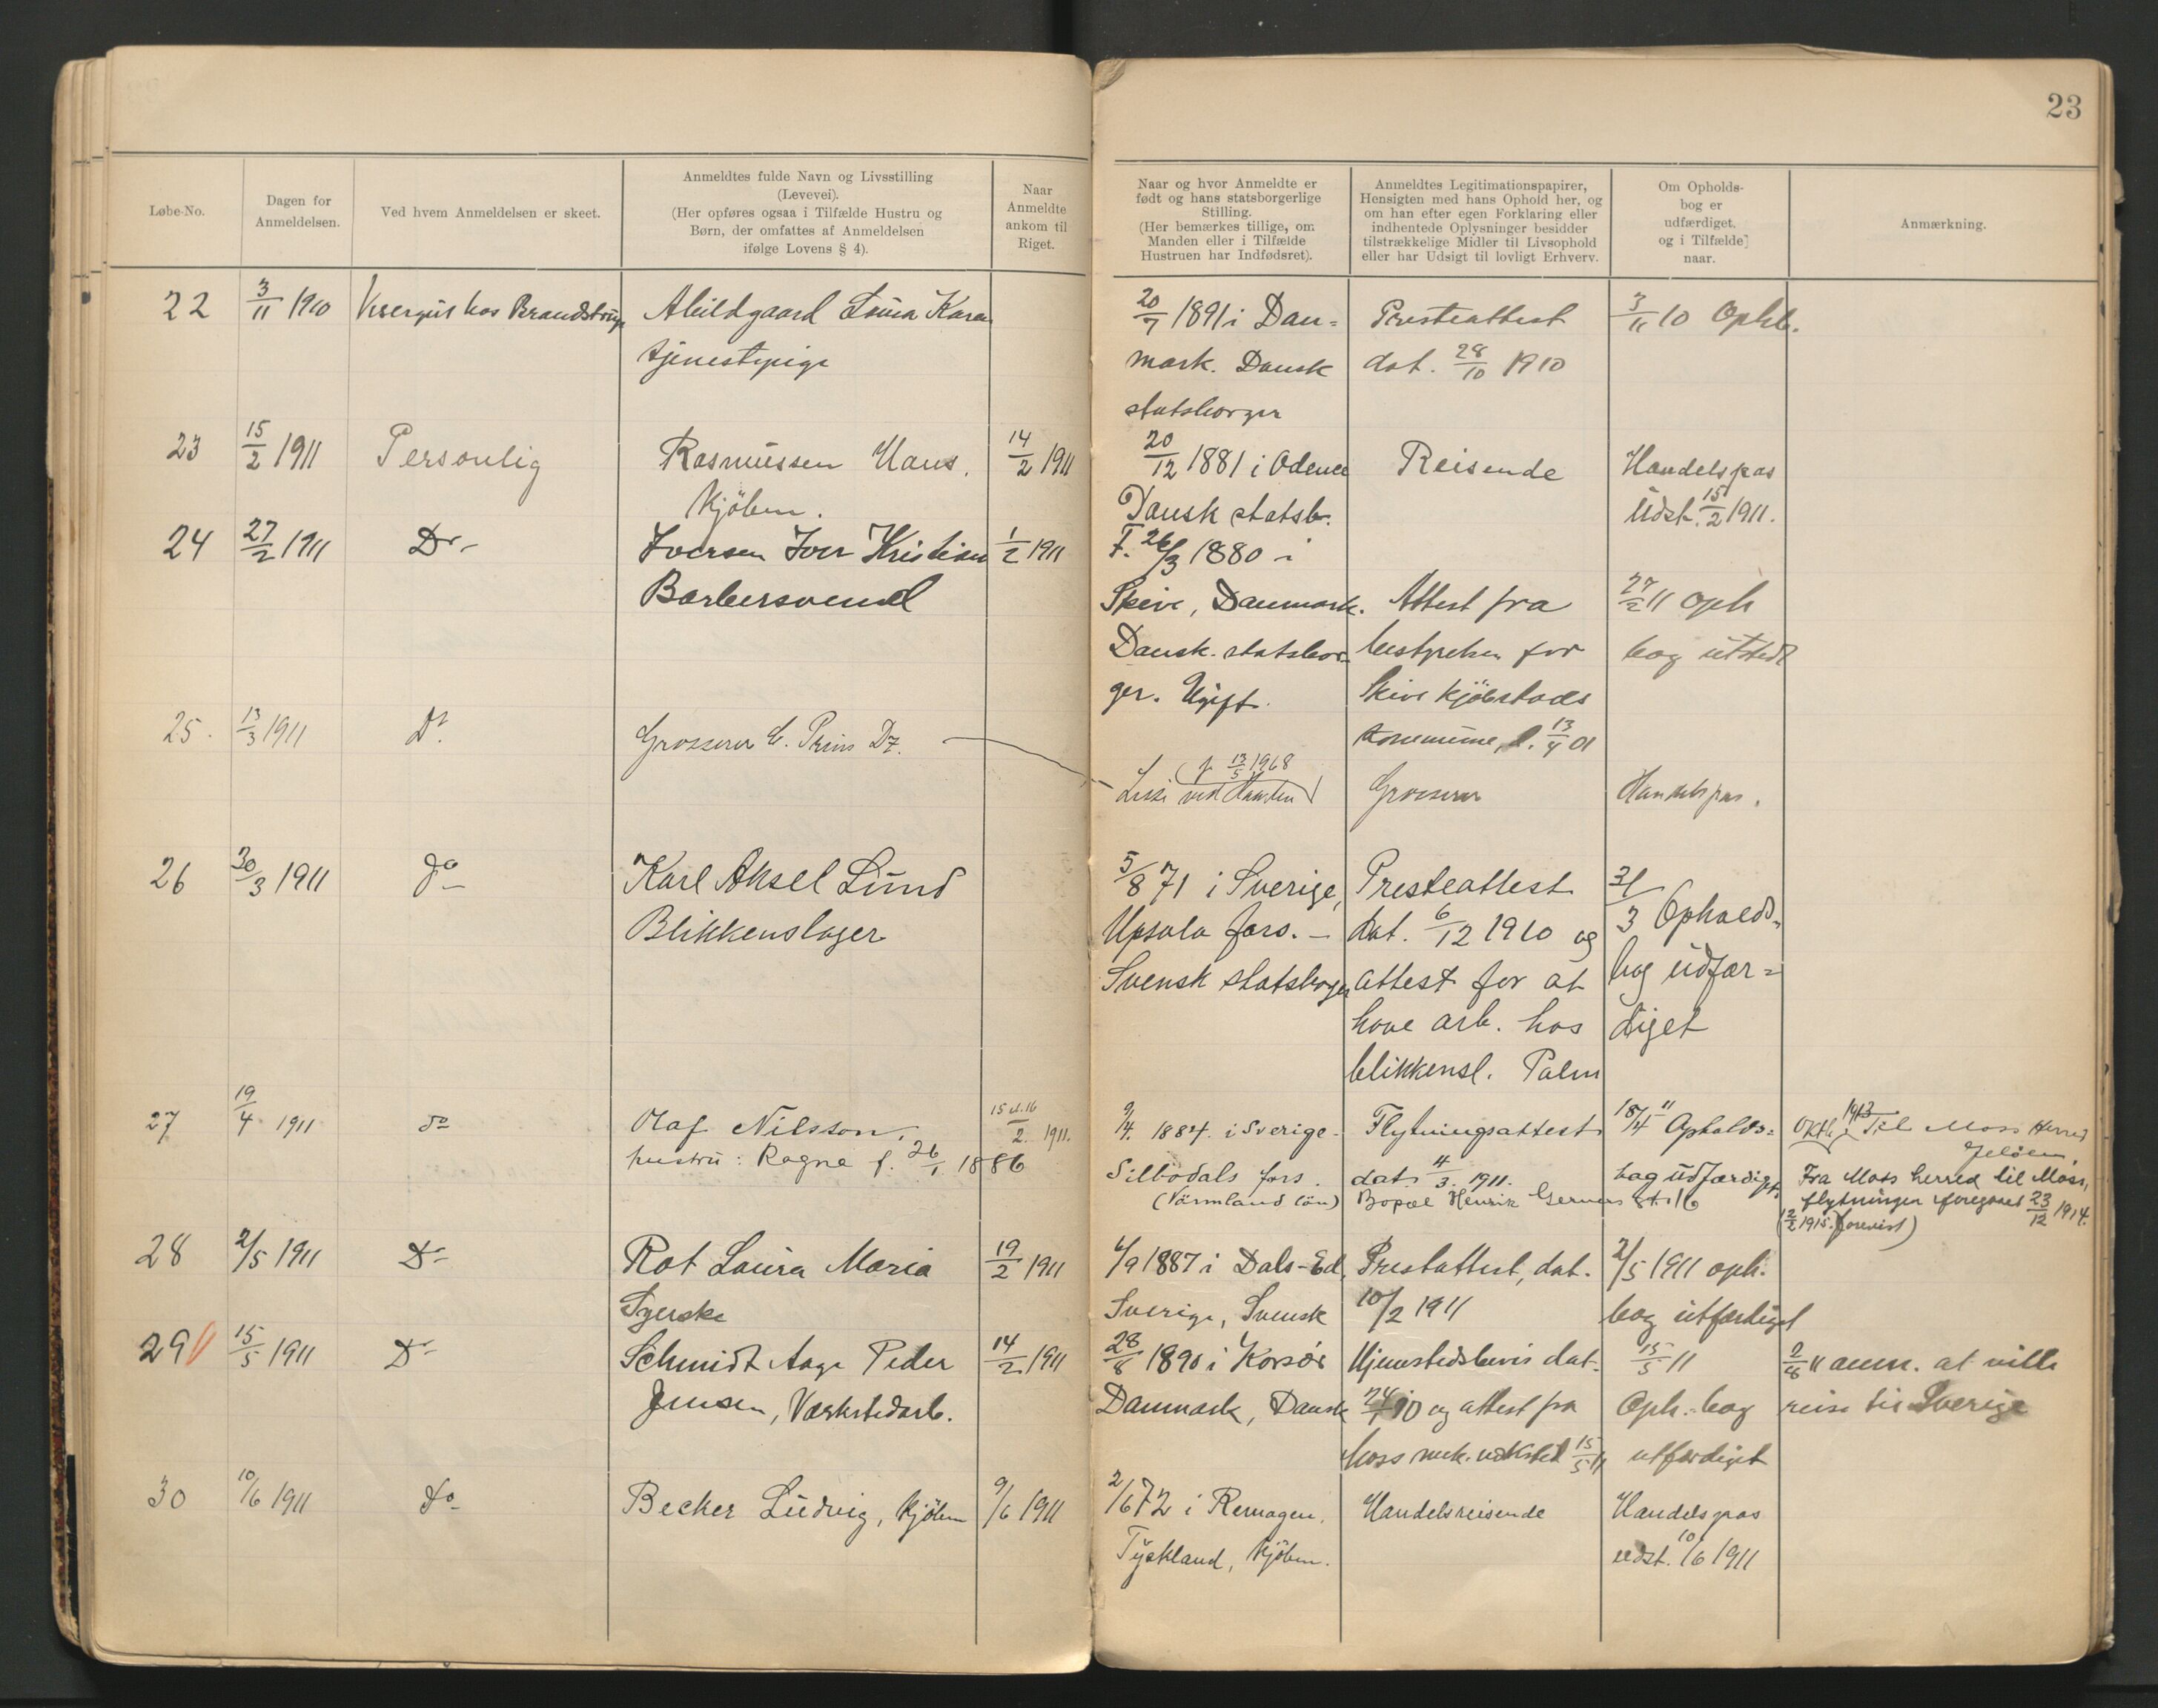 23
Løbe-No.
Dagen for
Anmeldelsen.
Ved hvem Anmeldelsen er skeet.
Anmeldtes fulde Navn og Livsstilling
(Levevei).
(Her opføres ogsaa i Tilfælde Hustru og
Børn, der omfattes af Anmeldelsen
ifølge Lovens § 4).
Naar
Anmeldte
ankom til
Riget.
Naar og hvor Anmeldte er
født og hans statsborgerlige
Stilling.
(Her bemærkes tillige, om
Manden eller i Tilfælde
Hustruen har Indfødsret).
Anmeldtes Legitimationspapirer,
Hensigten med hans Ophold her, og
om han efter egen Forklaring eller
indhentede Oplysninger besidder
tilstrækkelige Midler til Livsophold
eller har Udsigt til lovligt Erhverv.
Om Opholds-
bog er
udfærdiget,
og i Tilfælde
naar.
Anmærkning.
22
3/11 1910
hos Brandstrup
Abildgaard Laura Kara
tjenestepige
20/7 1891 i Dan=
mark. Dansk
statsborger
Presteattest
dat. 28/10 1910
3/11 10 Ophb.
23
15/2 1911
Personlig
Rasmussen Hans.
Kjöbm.
14/2 1911
20/12 1881 i Odence
Dansk statsb.
Reisende
Handelspas
Udst. 15/2 1911.
24
27/2 1911
Do
Iversen Iver Kristian
Barbersvend
1/2 1911
F. 26/3 1880 i
Skive, Danmark.
Dansk. statsbor-
ger. Ugift.
Attest fra
bestyrelsen for
Skive Kjöbstads
kommune, d. 13/4 01
27/2 11 oph
bog utstedt
25.
13/3 1911
Do
Grosserer C. Prins
f. 13/5 1968
ved
Grosserer
Handelspas.
26
30/3 1911
do
Karl Aksel Lund
Blikkenslager
5/8 71 i Sverige,
Upsala fors. –
Svensk statsborger
Presteattest
dat. 6/12 1910 og
attest for at
have arb. hos
blikkensl. Palm
31/3 Opholds-
bog udfær=
diget
27
19/4 1911
do
Olaf Nilsson.
hustru: Ragna f. 26/1 1886
15 el. 16/2. 1911.
9/4. 1884. i Sverige.
Silbodals fors.
(Värmland län)
Flytningsattest
dat. 4/3. 1911.
Bopæl Henrik Gerners gt. 16
18/4 11 Opholds=
bog udfærdiget
1913 Til Moss Herred
Jelöen.
Fra Moss herred til Moss,
flytningen foregaaet 23/12 1914.
(12/2 1915. forevist)
28
2/5 1911
Do
Rot Laura Maria
Syerske
19/2 1911
6/9 1887 i Dals-Ed,
Sverige, Svensk
Prestattest, dat.
10/2 1911
2/5 1911 oph.
bog utfærdiget
29
15/5 1911
Do
Schmidt Aage Peder
Jensen, Værkstedarb.
14/2 1911
28/8 1890 i Korsör
Danmark, Dansk
Hjemstedsbevis dat.
24/1 10 og attest fra
Moss mek. verksted 15/5 11
15/5 11
Oph.-bog
utfærdiget
2/8 11 anm. at ville
reise til Sverige
30
10/6 1911
do
Becker Ludvig, Kjöbm
9/6 1911
2/6 72 i Remagen.
Tyskland, Kjöbm.
Handelsreisende
Handelspas
udst. 10/6 1911